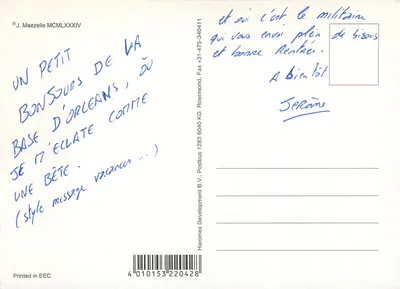 ©J. Maezelle MCMLXXXIV
UN PETIT
BONJOURS DE LA
BASE D'ORLEANS, OÙ
JE M'ECLATE COMME
UNE BÊTE.
(style message vacances ...)
Printed in EEC
4 010153 220428
Haromex Development B.V., Postbus 1283 6040 KG Roermond, Fax +31-475-340411
et oui c'est le militaire
qui vous envoi plein de bisous
et bonne Rentrée.
A bientôt
JERÔME